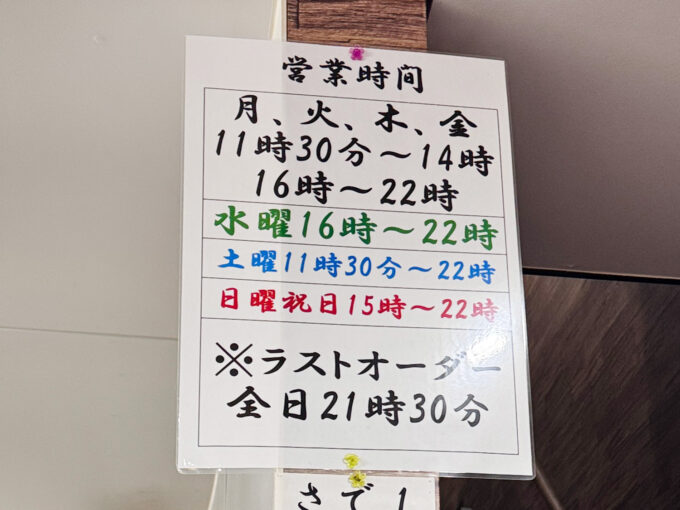 営業時間
月、火、木、金
11時30分～14時
16時～22時
水曜16時～22時
土曜11時30分～22時
日曜祝日15時～22時
※ラストオーダー
全日21時30分